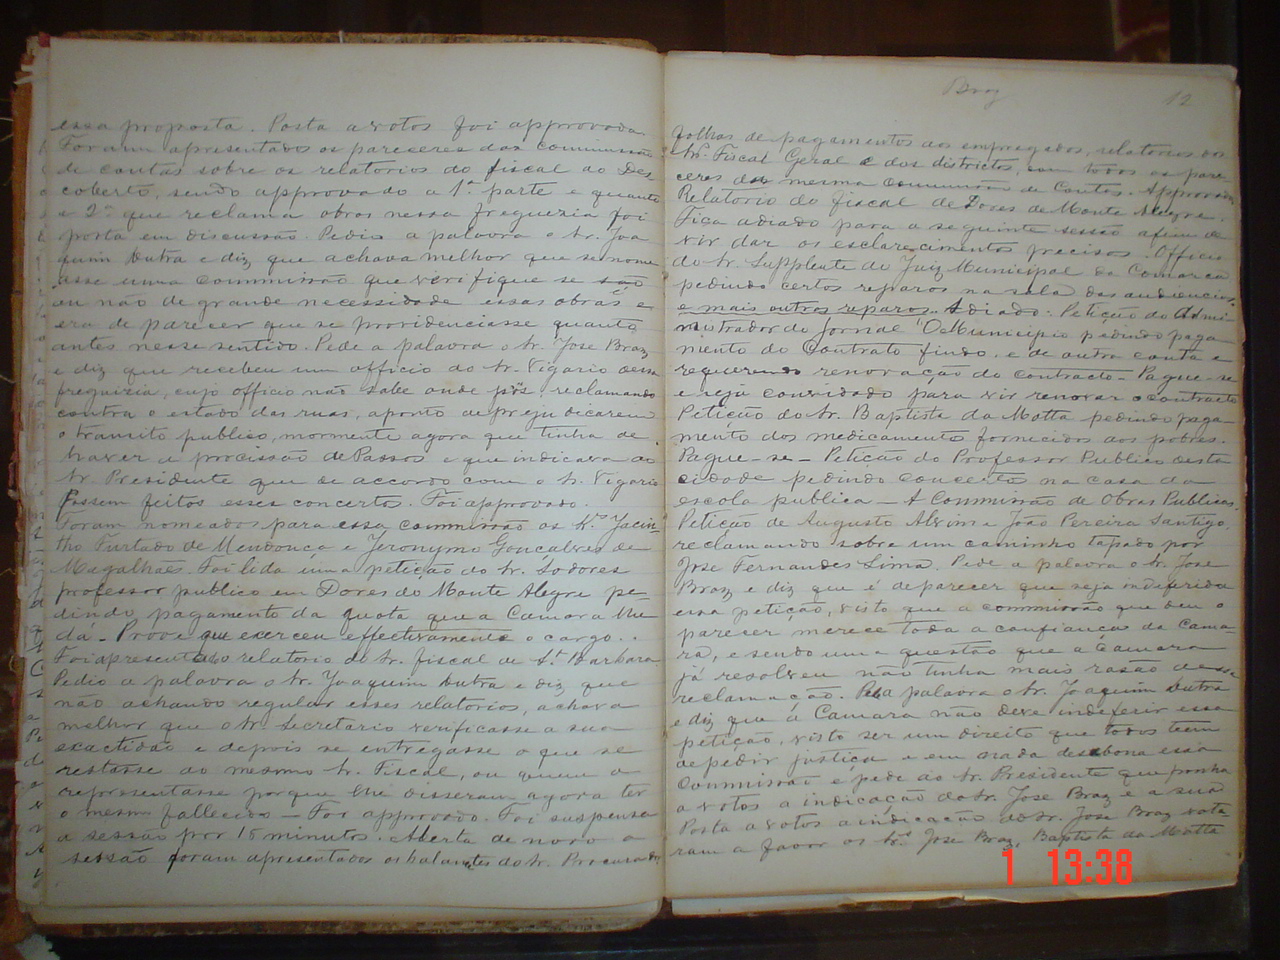 essa proposta. Posta a votos foi approvada
Foram apresentados os pareceres da commissão
de contas sobre os relatorios do fiscal do Des
coberto, sendo approvado a 1ª parte e quanto
a 2ª que reclama obras nessa freguezia foi
posta em discussão. Pedio a palavra o Sr. Joa
quim Dutra e diz que achava melhor que se nome
asse uma commissão que verifique se são
ou não de grande necessidade essas obras e
era de parecer que se providenciasse quanto
antes nesse sentido. Pede a palavra o Sr. Jose Braz
e diz que recebeu um officio do Sr. Vigario
freguizia, cujo officio não sabe onde pôs, reclamando
contra o estado das ruas, a ponto de prejudicarem
o transito publico, mormente agora que tinha de
haver a procissão de Passos e que indicava ao
Sr. Presidente que de accordo com o Sr. Vigario
fossem feitos esses concertos. Foi approvado.
Foram nomeados para essa commissão os Srs. Jacin
tho Furtado de Mendonça e Jeronymo Gonçalves de
Magalhães. Foi lida uma petição do Sr.
professor publico em Dores do Monte Alegre pe-
dindo pagamento da quota que a Camara lhe
dá - Prove que exerceu effectivamente o cargo.
Foi apresentado o relatorio do Sr. fiscal de Sta. Barbara
Pedio a palavra o Sr. Joaquim Dutra e diz que
não achando regular esses relatorios, achava
melhor que o Sr. Secretario verificasse a sua
exactidão e depois se entregasse o que se
restasse ao mesmo Sr. Fiscal, ou quem o
representasse porque lhe disseram agora ter
o mesmo fallecido - Foi approvado. Foi suspensa
a sessão por 15 minutos. Aberta de novo a
sessão foram apresentados os balancetes do Sr. Procurador
Braz 12
folhas de pagamentos aos empregados, relatorios dos
Srs. Fiscal Geral e dos districtos, com todos os pare
ceres da mesma Commissão de Contas. Approvados
Relatorio do fiscal de Dores de Monte Alegre.
Fica adiado para a seguinte sessão afim de
vir dar os esclarecimentos precisos. Officio
do Sr. Supplente do Juiz Municipal da Comarca
pedindo certos reparos na sala das audiencias
e mais outros reparos. Adiado. Petição do Admi-
nistrador do Jornal "O Municipio pedindo paga
mento do Contrato findo, e de outra conta e
requerendo renovação do contracto - Pague-se
e seja convidado para vir renovar o contracto
Petição do Sr. Baptista da Motta pedindo paga-
mento dos medicamento fornecidos aos pobres.
Pague-se - Petição do Professor Publico desta
cidade pedindo concerto na casa da
escola publica - A Commissão de Obras Publicas.
Petição de Augusto Alvim e João Pereira Santigo,
reclamando sobre um caminho tapado por
Jose Fernandes Lima. Pede a palavra o Sr. Jose
Braz e diz que é de parecer que seja indeferida
essa petição, visto que a commissão que deu o
parecer merece toda a confiança da Cama-
ra, e sendo uma questão que a Camara
já resolveu não tinha mais rasão de
reclamação. Pede a palavra o Sr. Joaquim Dutra
e diz que a Camara não deve indeferir essa
petição, visto ser um direito que todos teem
de pedir justiça e em nada desabona essa
Commissão e pede ao Sr. Presidente que ponha
a votos a indicação do Sr. Jose Braz e a sua
Posta a votos a indicação do Sr. Jose Braz vota
ram a favor os Srs. Jose Braz, Baptista da Motta
1 13:38